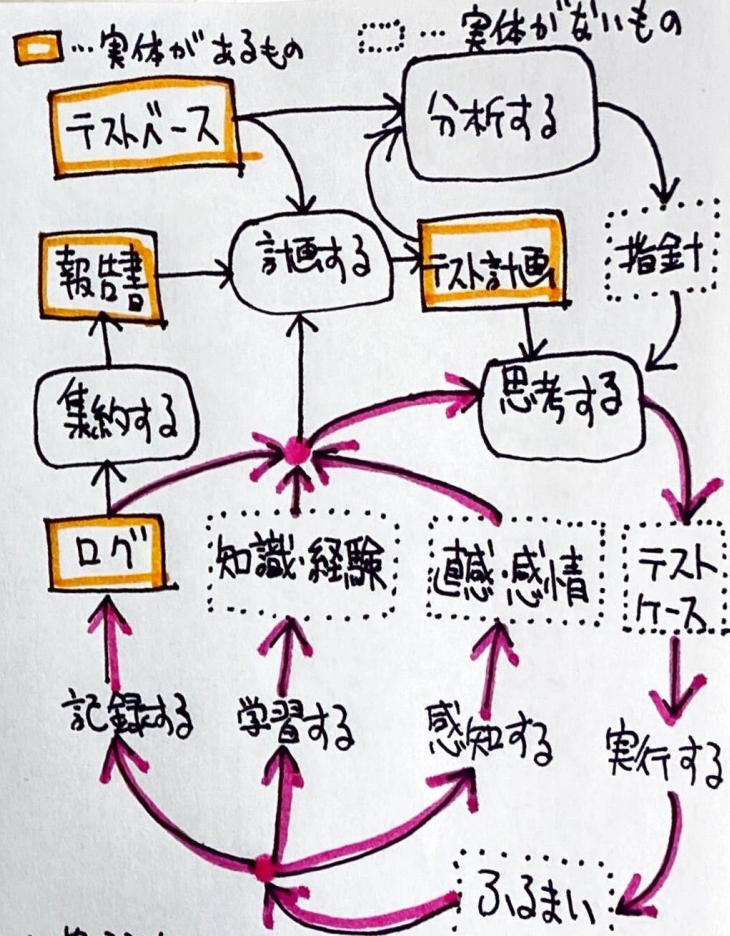 …実体があるもの
… 実体がないもの
テストベース
分析する
報告書
計画する
テスト計画
指針
集約する
思考する
ログ
知識・経験
直感・感情
テスト
ケース
記録する
学習する
感知する
実行する
ふるまい